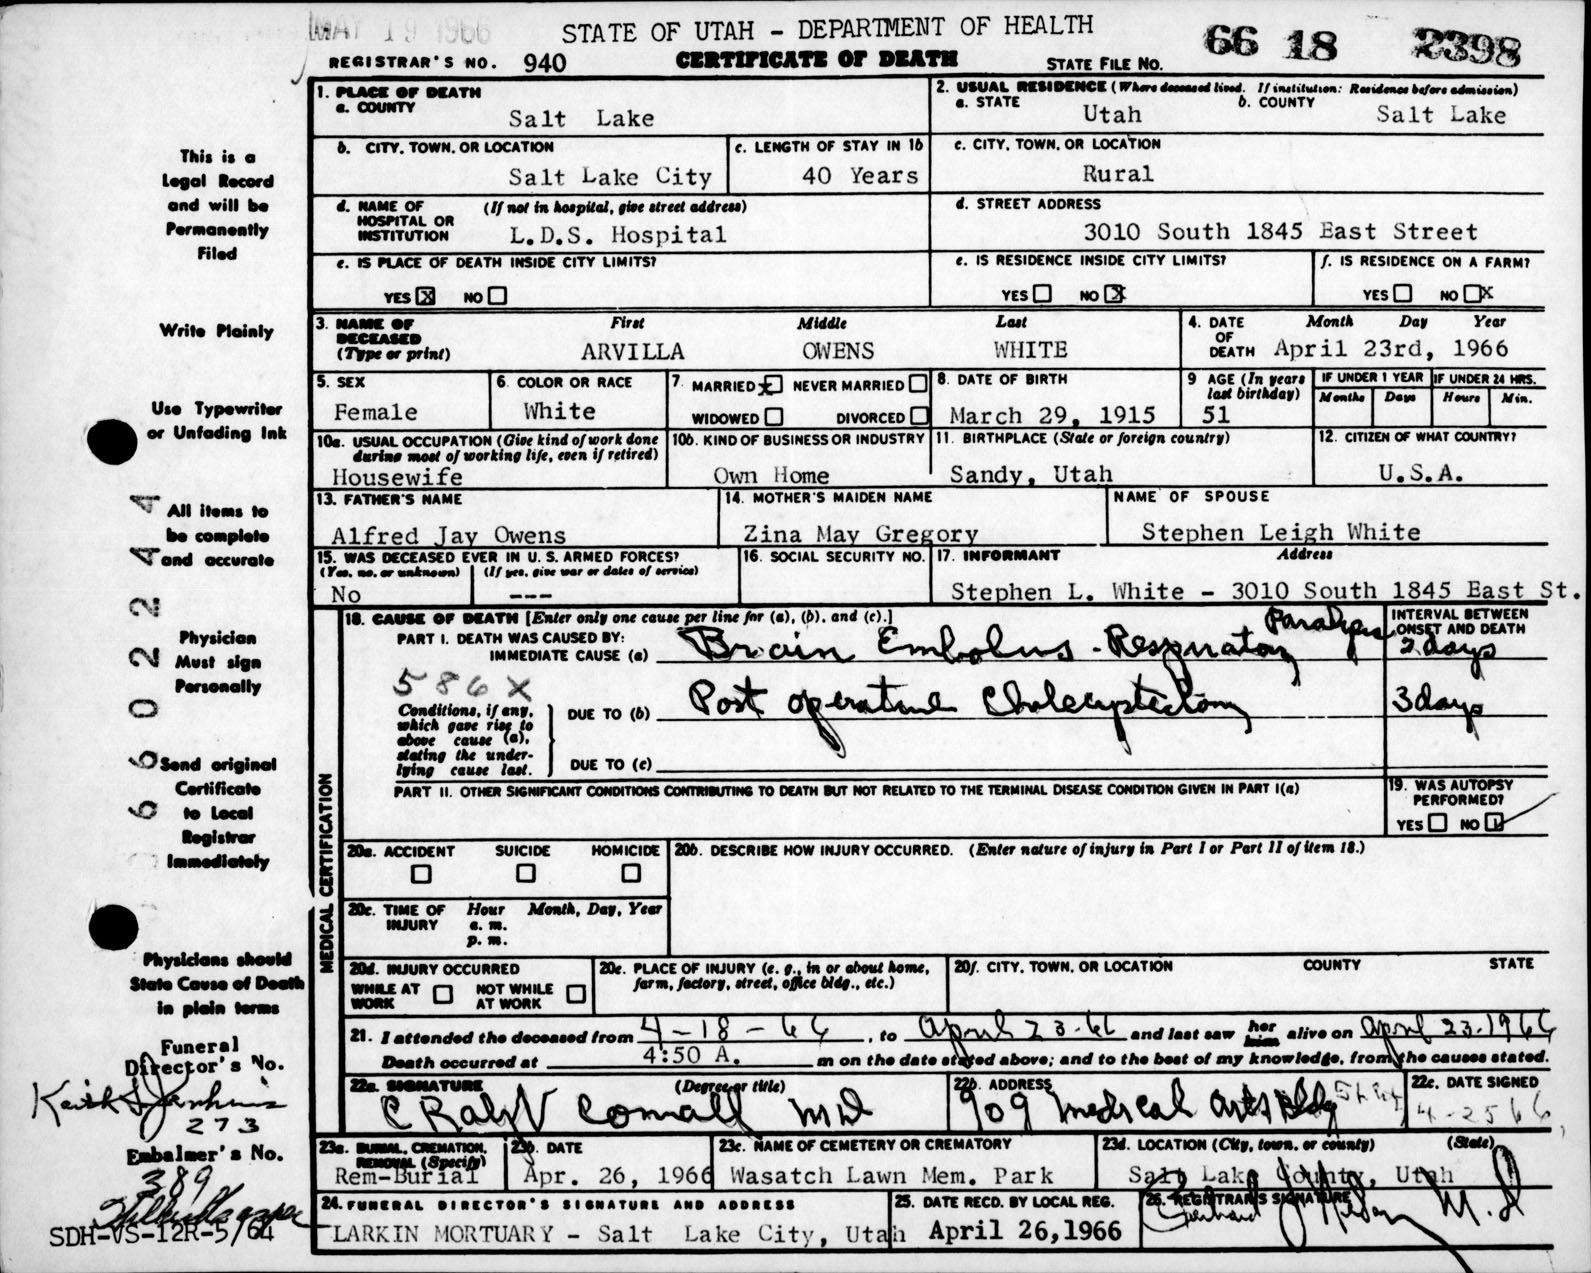 MAY 19 1966
STATE OF UTAH - DEPARTMENT OF HEALTH
66 18 2398
REGISTRAR'S NO. 940
CERTIFICATE OF DEATH
STATE FILE NO.
This is a
Legal Record
and will be
Permanently
Filed
Write Plainly
Use Typewriter
or Unfading Ink
All items to
be complete
and accurate
Physician
Must sign
Personally
Send original
Certificate
to Local
Registrar
Immediately
Physicians should
State Cause of Death
in plain terms
Funeral
Director's No.
273
Embalmer's No.
389
SDH-VS-12R-5/64
6602244
1. PLACE OF DEATH
a. COUNTY
Salt Lake
2. USUAL RESIDENCE (Where deceased lived. If institution: Residence before admission)
a. STATE
Utah
b. COUNTY
Salt Lake
b. CITY, TOWN, OR LOCATION
Salt Lake City
c. LENGTH OF STAY IN 1b
40 Years
c. CITY, TOWN, OR LOCATION
Rural
d. NAME OF (If not in hospital, give street address)
HOSPITAL OR
INSTITUTION
L.D.S. Hospital
d. STREET ADDRESS
3010 South 1845 East Street
e. IS PLACE OF DEATH INSIDE CITY LIMITS?
YES X NO
e. IS RESIDENCE INSIDE CITY LIMITS?
YES NO X
f. IS RESIDENCE ON A FARM?
YES NO X
3. NAME OF
DECEASED
(Type or print)
First Middle Last
ARVILLA OWENS WHITE
4. DATE
OF
DEATH
Month Day Year
April 23rd, 1966
5. SEX
Female
6. COLOR OR RACE
White
7. MARRIED X NEVER MARRIED
WIDOWED DIVORCED
8. DATE OF BIRTH
March 29, 1915
9 AGE (In years
last birthday)
51
IF UNDER 1 YEAR
Months Days
IF UNDER 24 HRS.
Hours Min.
10a. USUAL OCCUPATION (Give kind of work done
during most of working life, even if retired)
Housewife
10b. KIND OF BUSINESS OR INDUSTRY
Own Home
11. BIRTHPLACE (State or foreign country)
Sandy, Utah
12. CITIZEN OF WHAT COUNTRY?
U.S.A.
13. FATHER'S NAME
Alfred Jay Owens
14. MOTHER'S MAIDEN NAME
Zina May Gregory
NAME OF SPOUSE
Stephen Leigh White
15. WAS DECEASED EVER IN U. S. ARMED FORCES?
(Yes, no, or unknown) (If yes, give war or dates of service)
No ---
16. SOCIAL SECURITY NO.
17. INFORMANT Address
Stephen L. White - 3010 South 1845 East St.
MEDICAL CERTIFICATION
18. CAUSE OF DEATH [Enter only one cause per line for (a), (b), and (c).]
PART I. DEATH WAS CAUSED BY:
IMMEDIATE CAUSE (a) Brain Embolus - Respiratory Paralysis
INTERVAL BETWEEN
ONSET AND DEATH
2 days
586X
Conditions, if any,
which gave rise to
above cause (a),
stating the under-
lying cause last.
DUE TO (b) Post operative Cholecystectomy
3 days
DUE TO (c)
PART II. OTHER SIGNIFICANT CONDITIONS CONTRIBUTING TO DEATH BUT NOT RELATED TO THE TERMINAL DISEASE CONDITION GIVEN IN PART I(a)
19. WAS AUTOPSY
PERFORMED?
YES NO
20a. ACCIDENT SUICIDE HOMICIDE
20b. DESCRIBE HOW INJURY OCCURRED. (Enter nature of injury in Part I or Part II of item 18.)
20c. TIME OF Hour Month, Day, Year
INJURY a. m.
p. m.
20d. INJURY OCCURRED
WHILE AT WORK NOT WHILE AT WORK
20e. PLACE OF INJURY (e. g., in or about home,
farm, factory, street, office bldg., etc.)
20f. CITY, TOWN, OR LOCATION COUNTY STATE
21. I attended the deceased from 4-18-66, to April 23-66 and last saw her him alive on April 23-1966
Death occurred at 4:50 A. m on the date stated above; and to the best of my knowledge, from the causes stated.
22a. SIGNATURE (Degree or title)
C Ralph Cornall MD
22b. ADDRESS
909 Medical Arts Bldg
22c. DATE SIGNED
4-25 66
23a. BURIAL, CREMATION,
REMOVAL (Specify)
Rem-Burial
23b. DATE
Apr. 26, 1966
23c. NAME OF CEMETERY OR CREMATORY
Wasatch Lawn Mem. Park
23d. LOCATION (City, town, or county) (State)
Salt Lake County, Utah
24. FUNERAL DIRECTOR'S SIGNATURE AND ADDRESS
LARKIN MORTUARY - Salt Lake City, Utah
25. DATE RECD. BY LOCAL REG.
April 26, 1966
26. REGISTRAR'S SIGNATURE
M.D